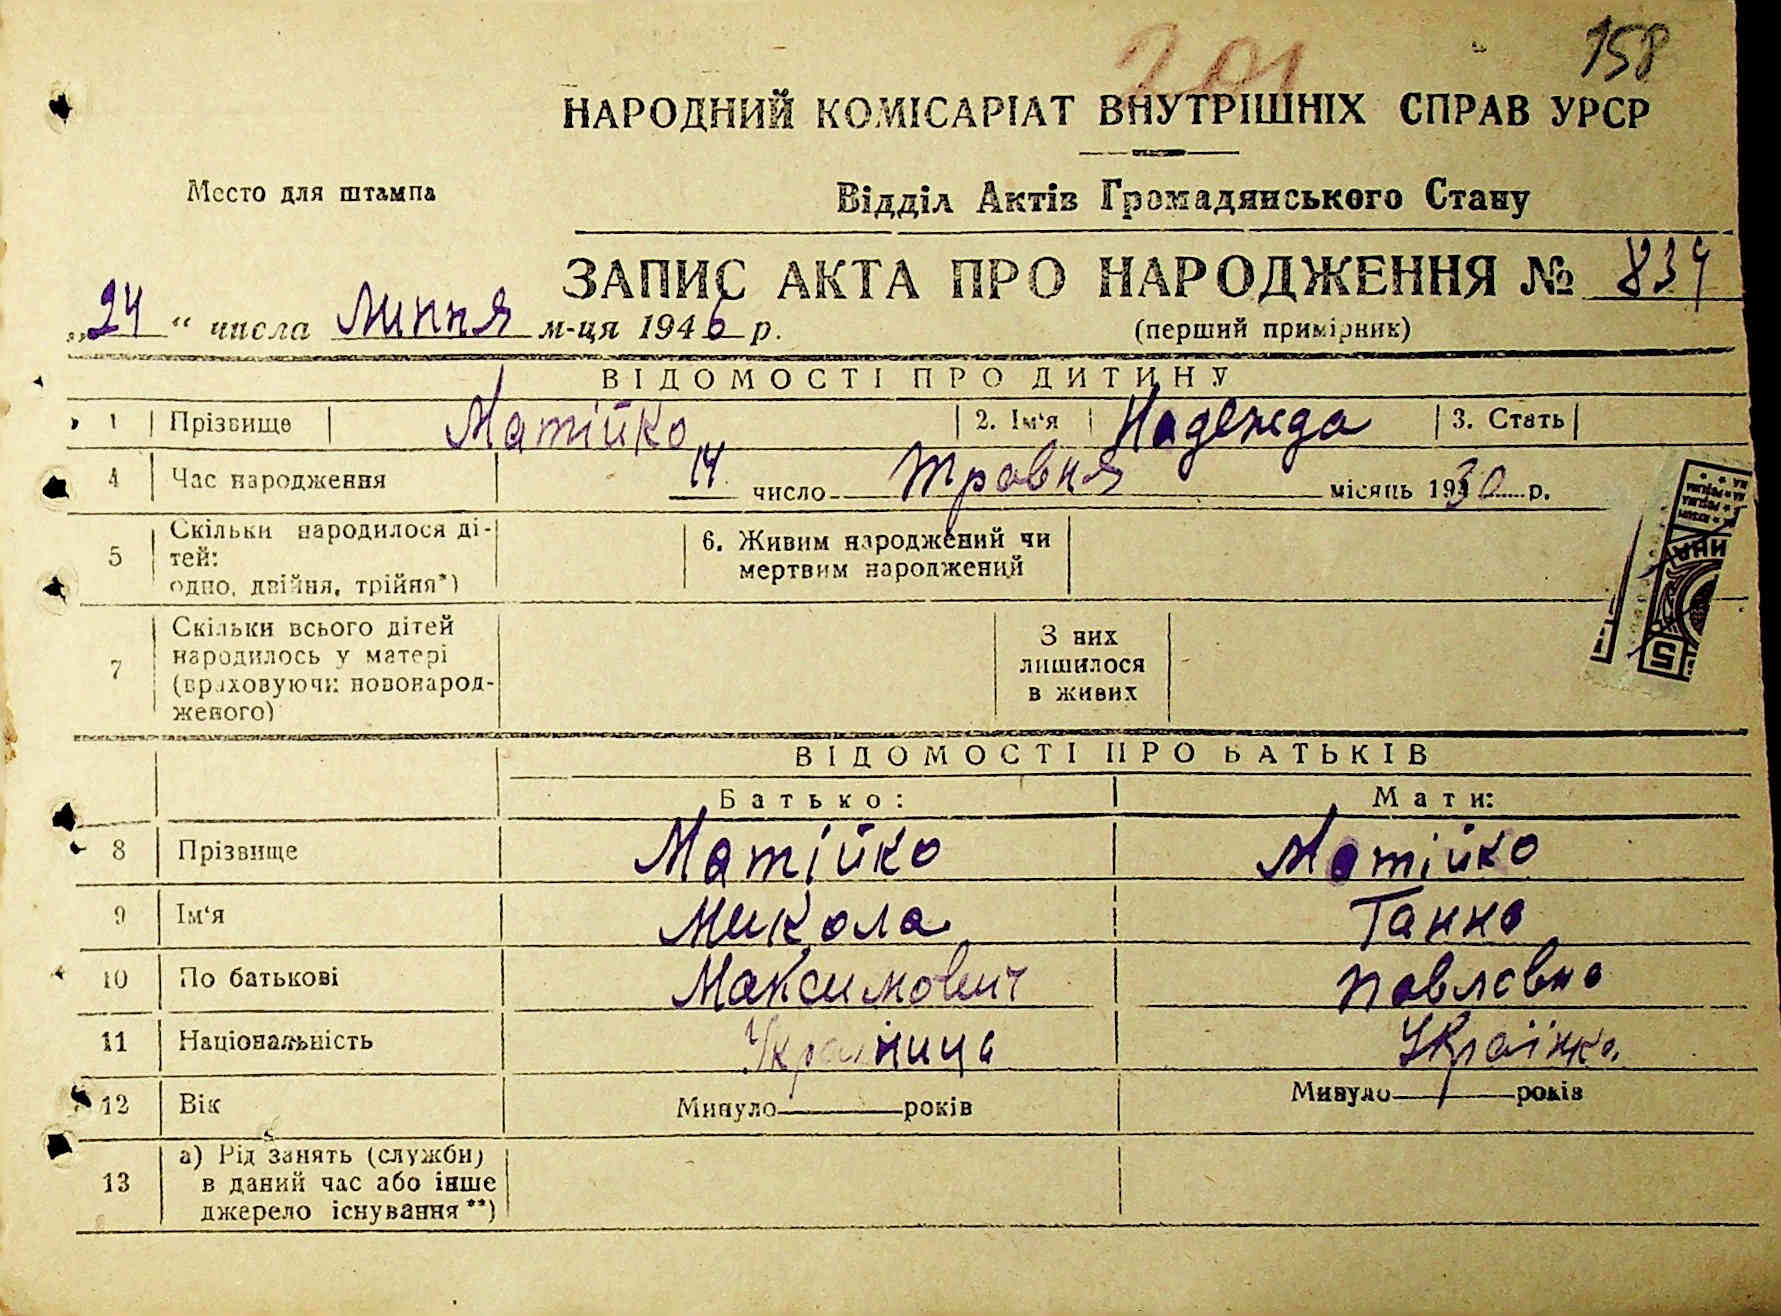 201
158
НАРОДНИЙ КОМІСАРІАТ ВНУТРІШНІХ СПРАВ УРСР
Место для штампа
Відділ Актів Громадянського Стану
ЗАПИС АКТА ПРО НАРОДЖЕННЯ № 834
„24“ числа Липня м-ця 1946 р.
(перший примірник)
ВІДОМОСТІ ПРО ДИТИНУ
1 Прізвище Матійко 2. Ім‘я Надежда 3. Стать
4 Час народження 14 число Травня місяць 1930 р.
5 Скільки народилося ді-
тей:
одно, двійня, трійня*)
6. Живим народжений чи
мертвим народжений
7 Скільки всього дітей
народилось у матері
(враховуючи новонарод-
женого)
З них
лишилося
в живих
ВІДОМОСТІ ПРО БАТЬКІВ
Батько: Мати:
8 Прізвище Матійко Матійко
9 Ім‘я Микола Ганна
10 По батькові Максимович Павловна
11 Національність Українець Українка
12 Вік Минуло років Минуло років
13 а) Рід занять (служби)
в даний час або інше
джерело існування**)
5